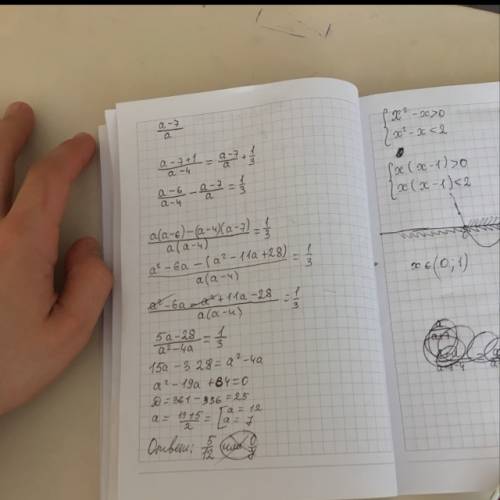 a-7/a
a-7+1/a-4 = a-7/a + 1/3
a-6/a-4 - a-7/a = 1/3
a(a-6)-(a-4)(a-7)/a(a-4) = 1/3
a²-6a-(a²-11a+28)/a(a-4) = 1/3
a²-6a-a²+11a-28/a(a-4) = 1/3
5a-28/a²-4a = 1/3
15a-3·28=a²-4a
a²-19a+84=0
D=361-336=25
a= 19±5/2 = [a=12
a=7
Ответ: 5/12 или 0/7
{x²-x>0
x²-x<2
{x(x-1)>0
x(x-1)<2
x∈(0;1)